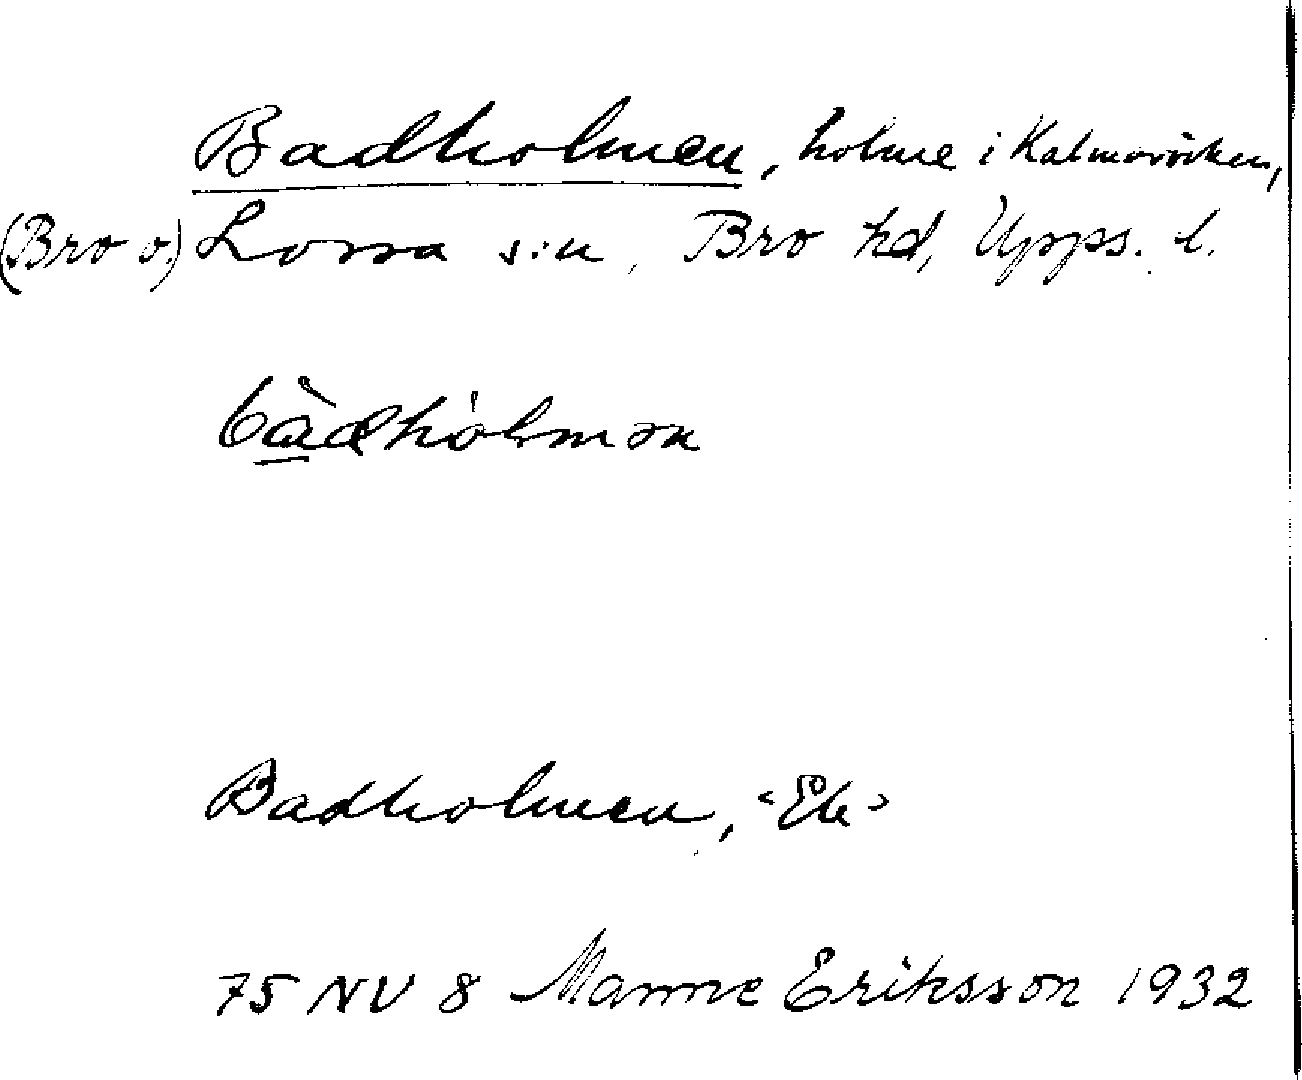 Badholmen, holme i Kalmarviken,
(Bro o.) Lossa s:n, Bro hd, Upps. l.
bàdhólmən
Badholmen, "Ek"
75 NV 8 Manne Eriksson 1932